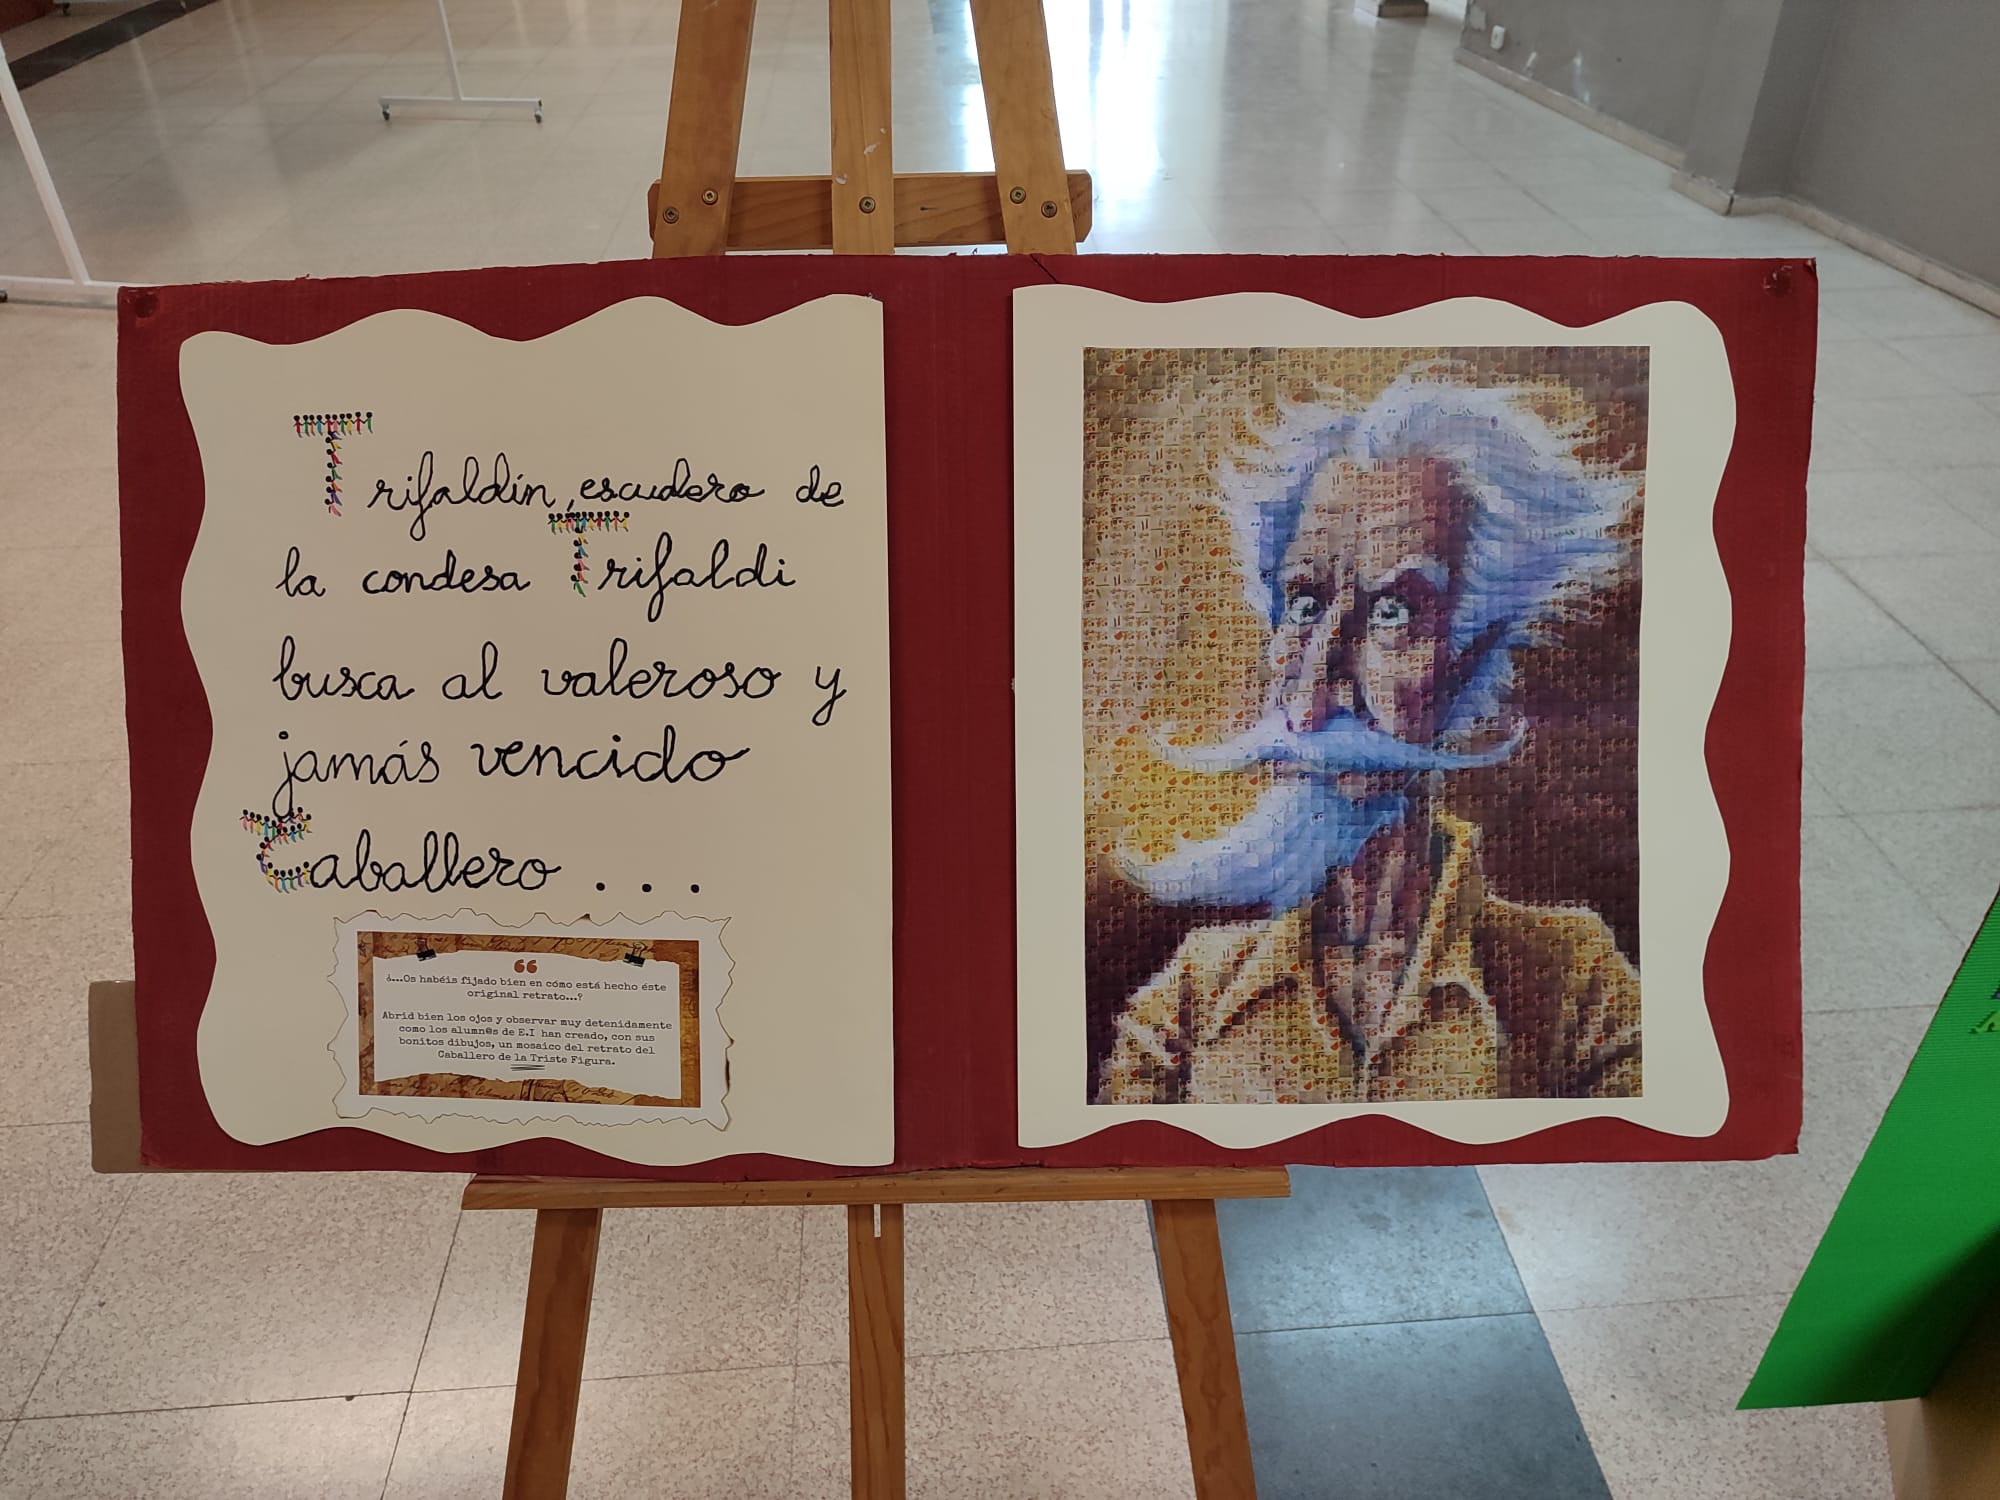 Trifaldín, escudero de
la condesa Trifaldi
busca al valeroso y
jamás vencido
Caballero . . .
¿...Os habéis fijado bien en cómo está hecho éste
original retrato...?
Abrid bien los ojos y observar muy detenidamente
como los alumn@s de E.I han creado, con sus
bonitos dibujos, un mosaico del retrato del
Caballero de la Triste Figura.